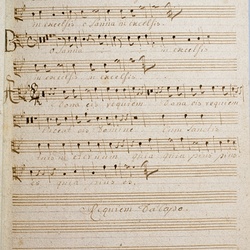 in excelsis osanna in excelsis
B
osanna in excelsis
in excelsis
A
Dona eis requiem Dona eis requiem
luceat eis Domine Cum sanctis
tuis in aeternum quia quia pius pius
es quia pius es
Requiem Da Capo